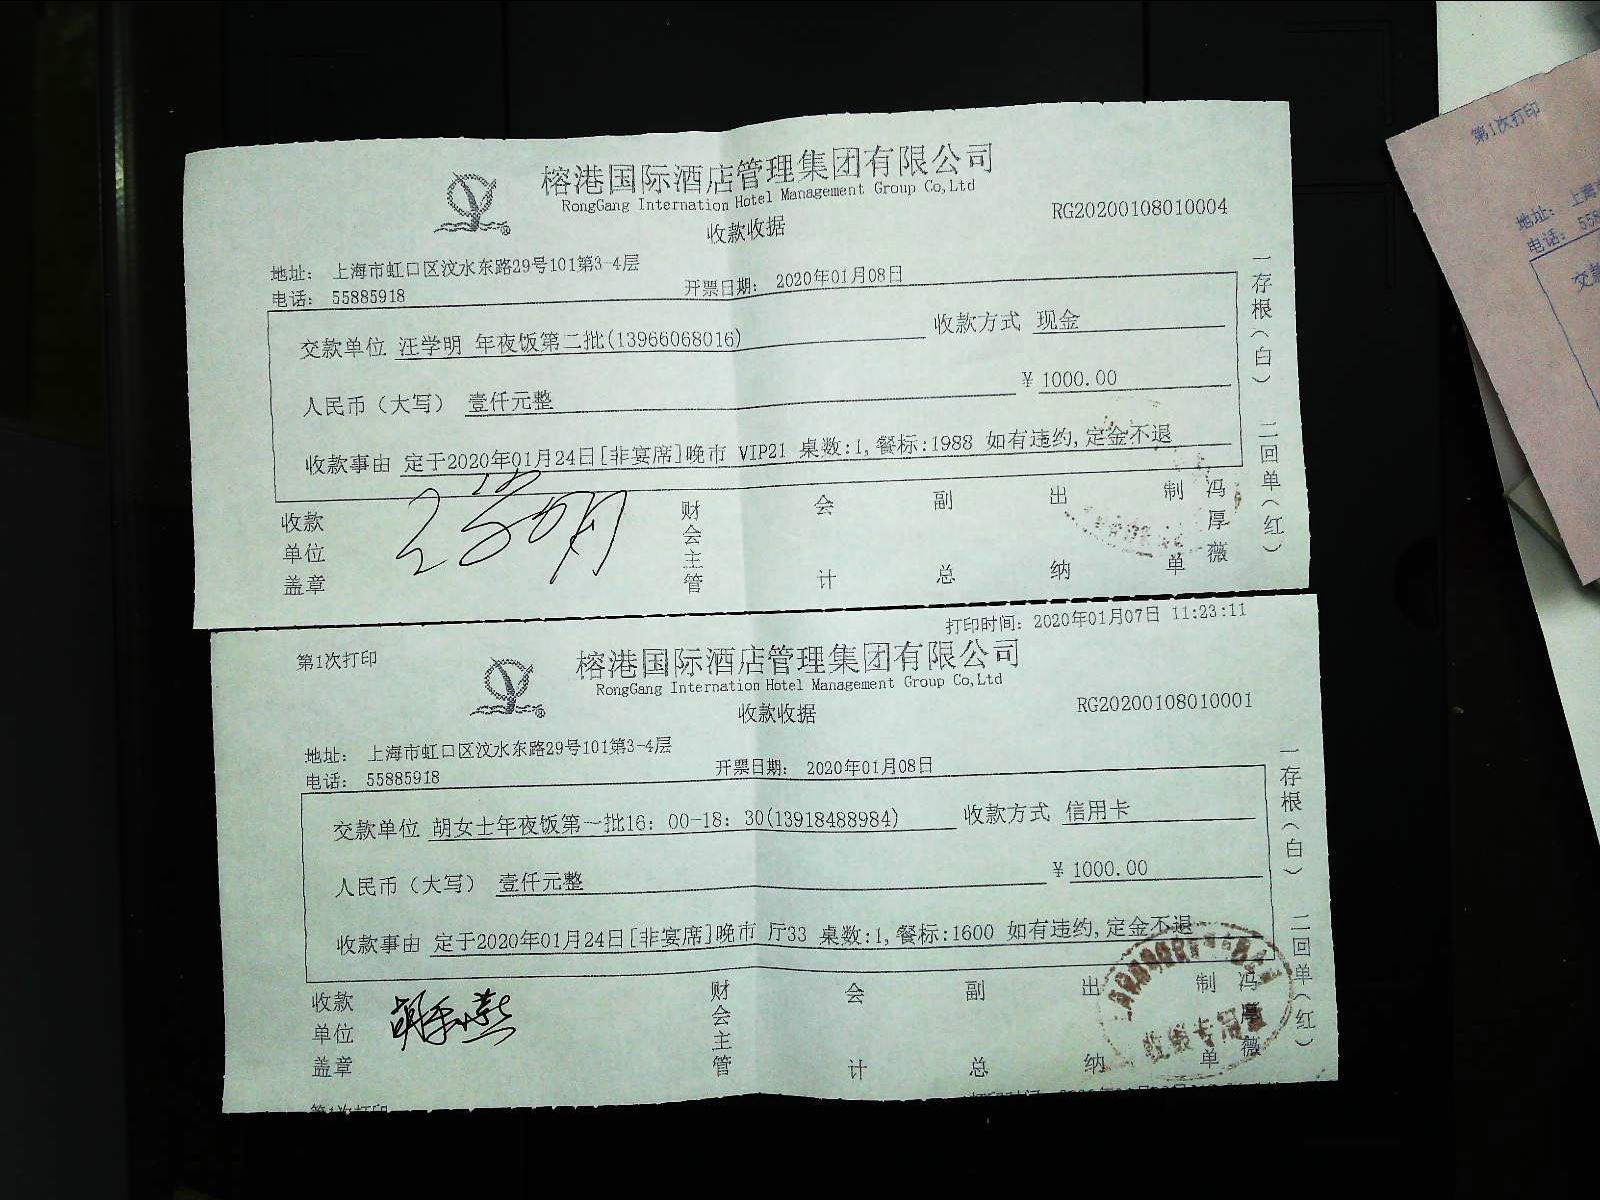 榕港国际酒店管理集团有限公司
RongGang Internation Hotel Management Group Co,Ltd
收款收据
RG20200108010004
地址： 上海市虹口区汶水东路29号101第3-4层
电话： 55885918
开票日期： 2020年01月08日
交款单位 汪学明 年夜饭第二批(13966068016) 收款方式 现金
人民币（大写） 壹仟元整 ￥1000.00
收款事由 定于2020年01月24日[非宴席]晚市 VIP21 桌数:1,餐标:1988 如有违约,定金不退
收款单位盖章 汪学明 财会主管 会计 副总 出纳 制单 冯厚薇
一存根（白） 二回单（红）
打印时间： 2020年01月07日 11:23:11
第1次打印
榕港国际酒店管理集团有限公司
RongGang Internation Hotel Management Group Co,Ltd
收款收据
RG20200108010001
地址： 上海市虹口区汶水东路29号101第3-4层
电话： 55885918
开票日期： 2020年01月08日
交款单位 胡女士年夜饭第一批16：00-18：30(13918488984) 收款方式 信用卡
人民币（大写） 壹仟元整 ￥1000.00
收款事由 定于2020年01月24日[非宴席]晚市 厅33 桌数:1,餐标:1600 如有违约,定金不退
收款单位盖章 财会主管 会计 副总 出纳 制单 冯厚薇
一存根（白） 二回单（红）
第1次打印
第1次打印
地址： 上海
电话： 558
交款